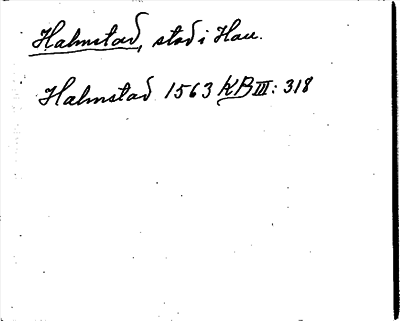 Halmstad, stad i Hall.
Halmstad 1563 KB III: 318